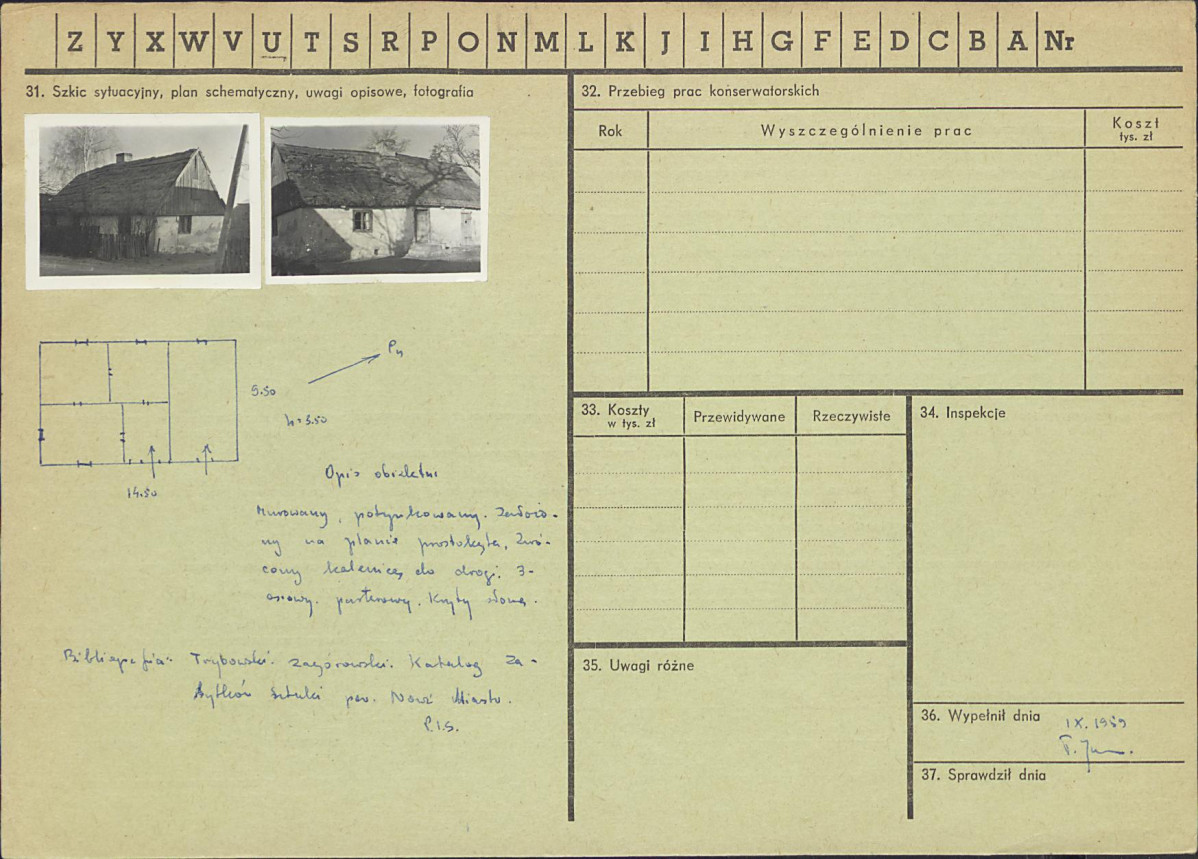 Z Y X W V U T S R P O N M L K J I H G F E D C B A Nr
31. Szkic sytuacyjny, plan schematyczny, uwagi opisowe, fotografia
Pn
9.50
h = 3.50
14.50
Opis obiektu
Murowany, potynkowany. Założo-
ny na planie prostokąta, zwró-
cony kalenicą do drogi. 3-
osiowy. parterowy. Kryty słomą.
Bibliografia: Trybowski. Zagórowski. Katalog Za-
bytków Sztuki pow. Nowe Miasto.
P.I.S.
32. Przebieg prac konserwatorskich
Rok
Wyszczególnienie prac
Koszt
tys. zł
33. Koszty
w tys. zł
Przewidywane
Rzeczywiste
34. Inspekcje
35. Uwagi różne
36. Wypełnił dnia
IX. 1959
37. Sprawdził dnia